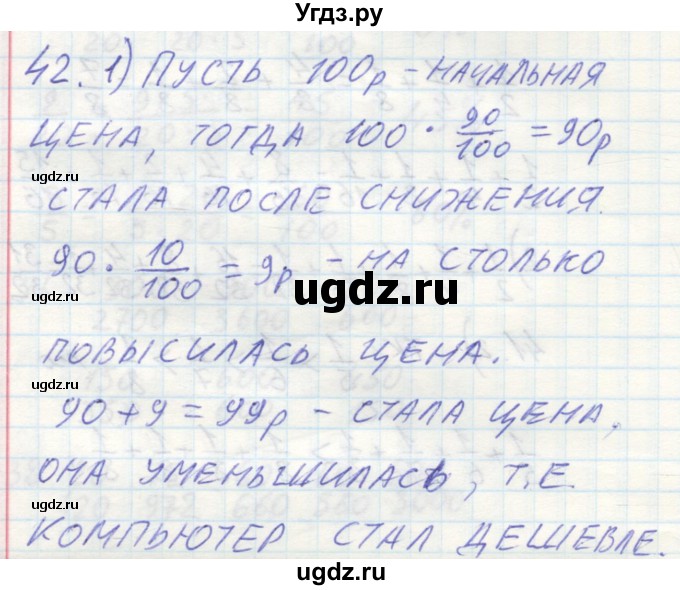 Угдз.ру
42. 1) Пусть 100р – начальная
цена, тогда 100 · 90/100 = 90р
ugdz.ru
стала после снижения.
90 · 10/100 = 9р – на столько
ugdz.ru
ugdz.ru
повысилась цена.
ugdz.ru
90 + 9 = 99р – стала цена,
она уменьшилась, т.е.
ugdz.ru
компьютер стал дешевле.
ugdz.ru